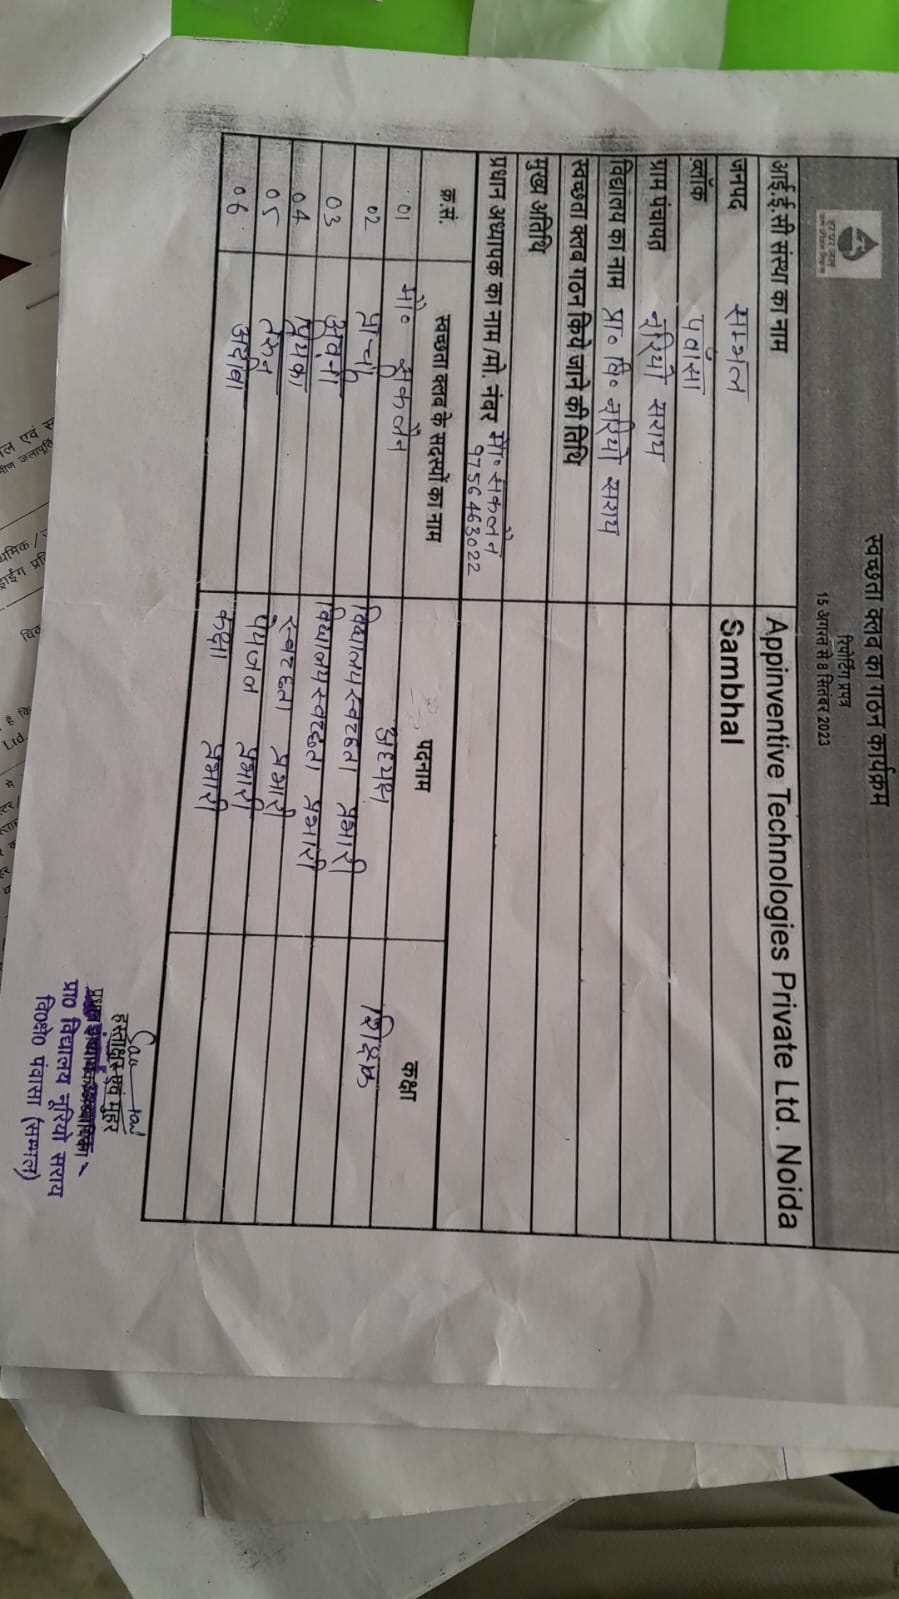 स्वच्छता क्लब का गठन कार्यक्रम
रिपोर्टिंग प्रपत्र
15 अगस्त से 8 सितंबर 2023
हर घर जल
आई.ई.सी संस्था का नाम Appinventive Technologies Private Ltd. Noida
जनपद सम्भल Sambhal
ब्लॉक पवांसा
ग्राम पंचायत नूरियो सराय
विद्यालय का नाम प्रा० वि० नूरियो सराय
स्वच्छता क्लब गठन किये जाने की तिथि
मुख्य अतिथि
प्रधान अध्यापक का नाम मो. नंबर मो० सकलैन
9756463022
क्र.सं. स्वच्छता क्लब के सदस्यों का नाम पदनाम कक्षा
01 मो० सुकलैन अध्यक्ष शिक्षक
02 प्राची विद्यालय स्वच्छता प्रभारी
03 विद्यालय स्वच्छता प्रभारी
04 स्वच्छता प्रभारी
05 तरुन पेयजल प्रभारी
06 कक्षा प्रभारी
हस्ताक्षर एवं मुहर
प्रा0 विद्यालय नूरियो सराय
वि0क्षे0 पंवासा (सम्भल)